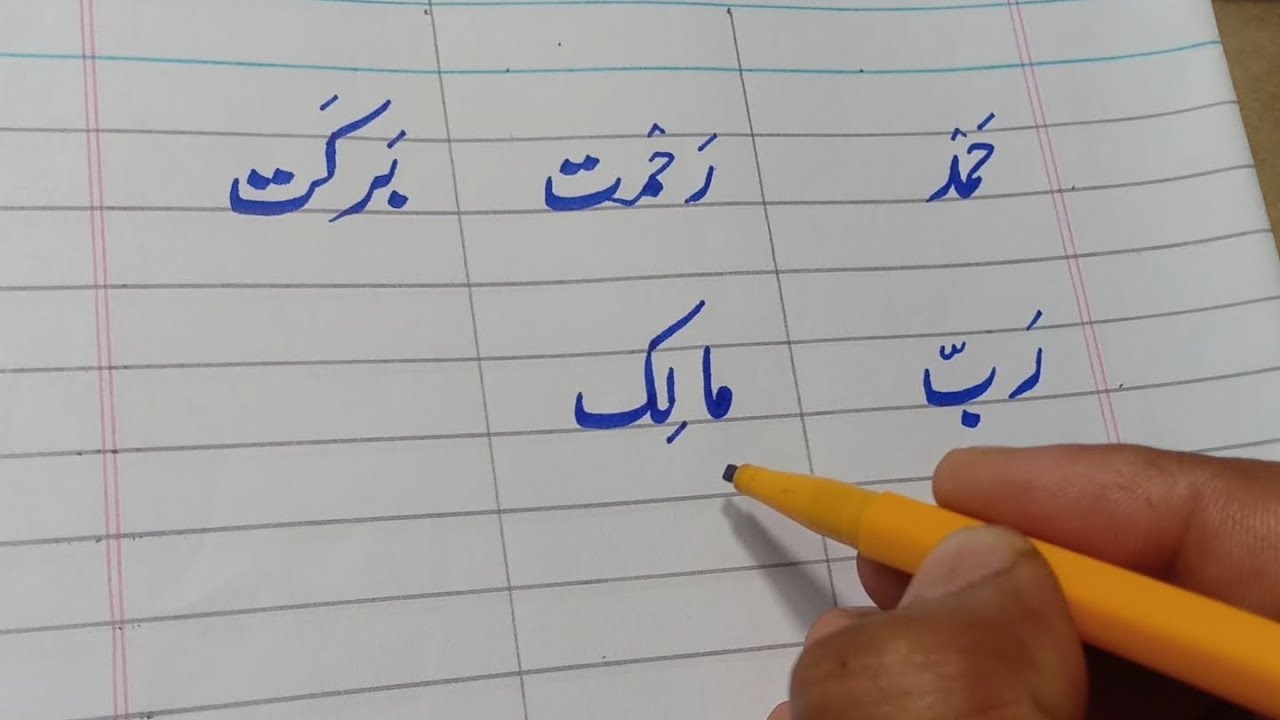 حَمۡد رَحۡمت بَرکَت
رَبّ مالِک